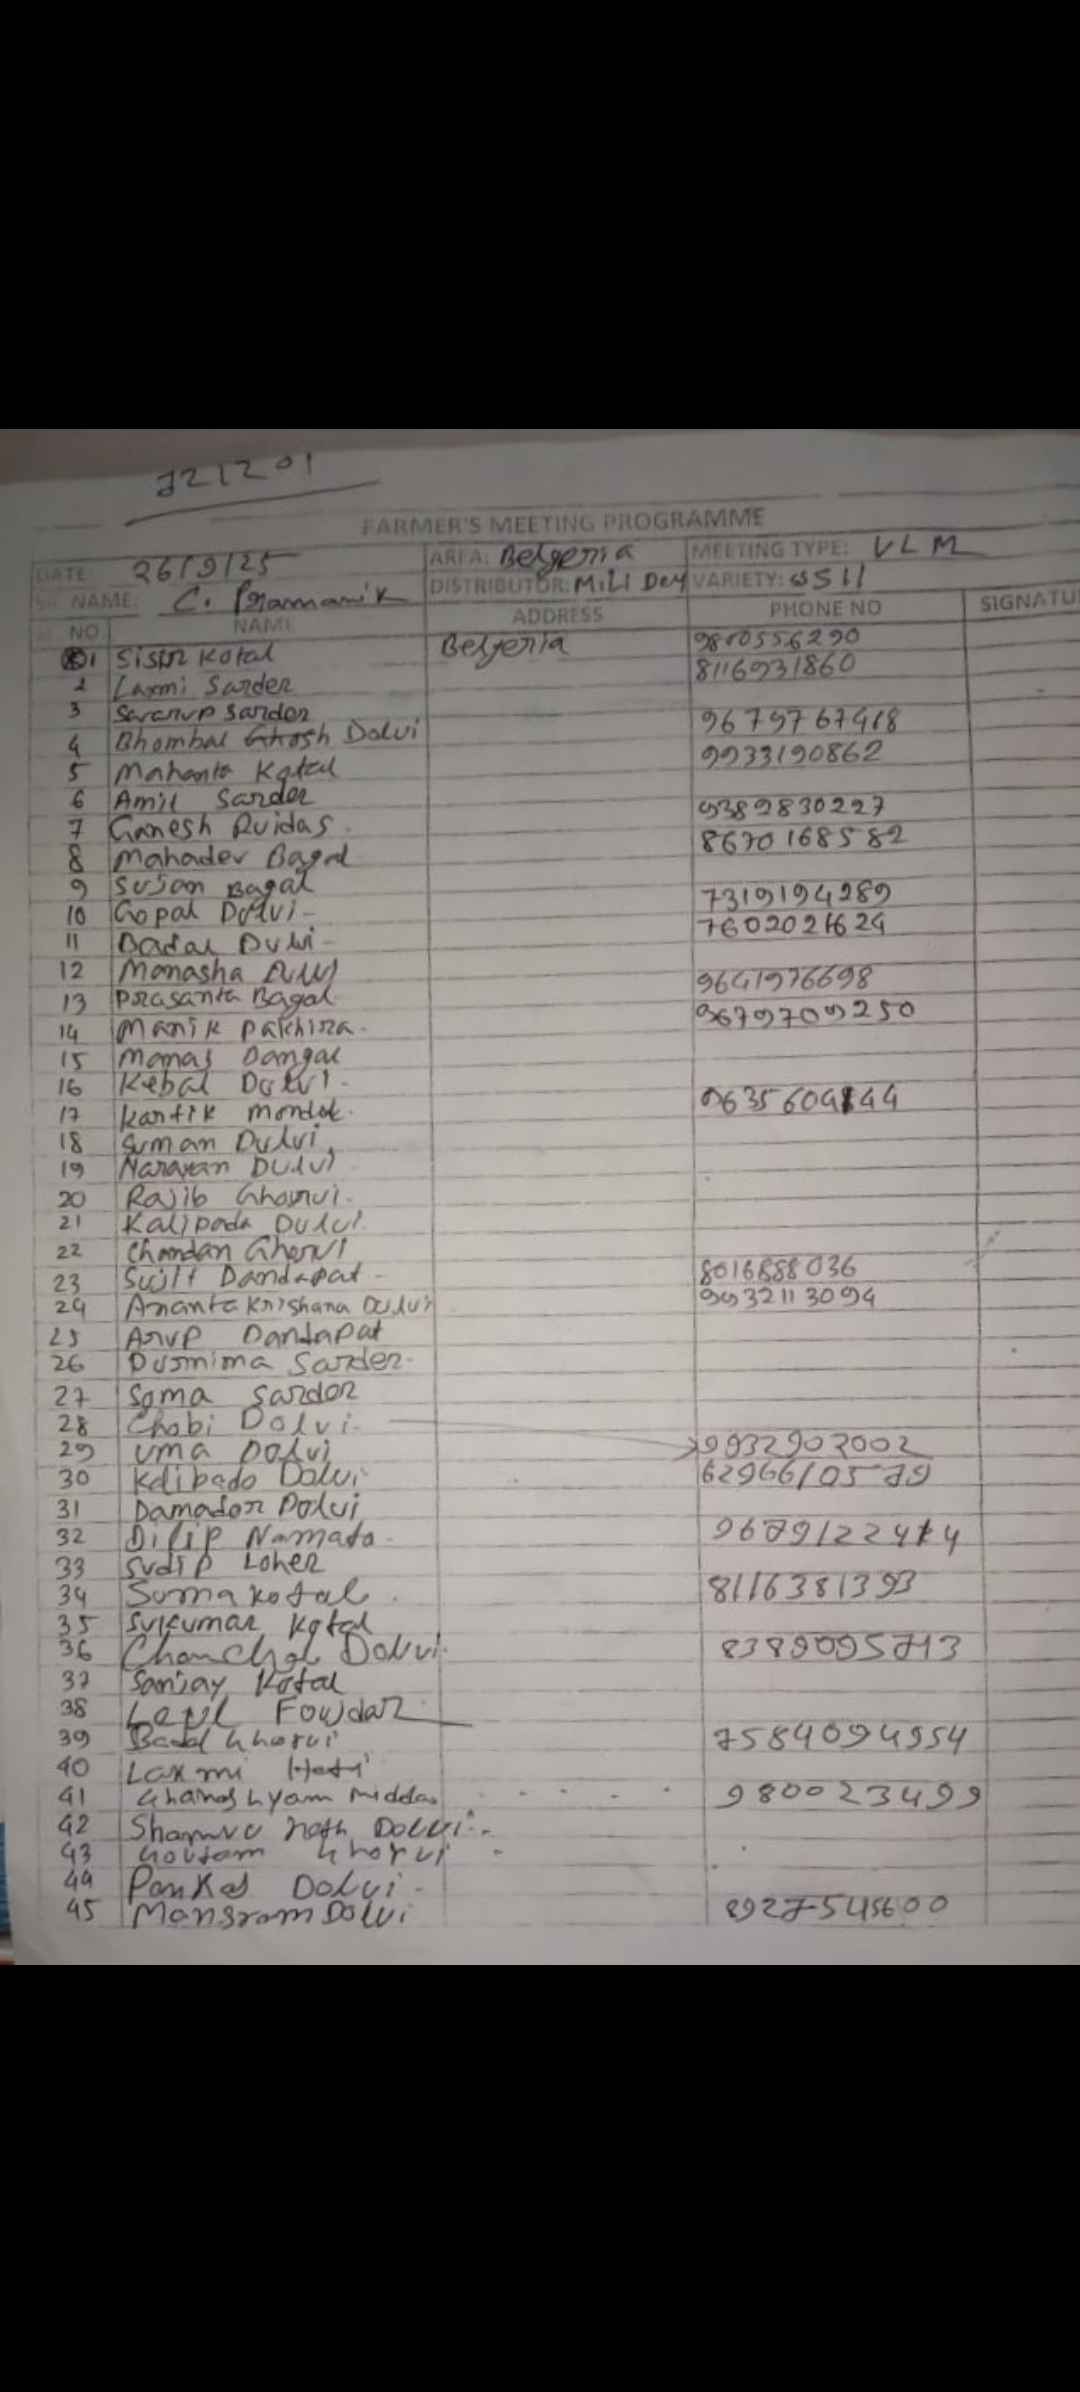 721201
FARMER'S MEETING PROGRAMME
DATE 26/9/25 AREA: Belgeria MEETING TYPE: VLM
NAME: C. Pramanik DISTRIBUTOR: MILI Dey VARIETY: US11
NO NAME ADDRESS PHONE NO SIGNATU
1 Sisir Kotal Belgeria 9800556290
2 Laxmi Sarder 8116931860
3 Sararup Sarder
4 Bhombal Ghosh Dolvi 9679767418
5 Mahanta Kotal 9933190862
6 Amil Sarder
7 Ganesh Ruidas. 9382830227
8 Mahadev Bagal 8670168582
9 Sujan Bagal
10 Gopal Dolvi- 7319194289
11 Badal Dulvi- 7602021624
12 Manasha Dulvi
13 Prasanta Bagal 9641976698
14 Manik Pakhira. 9679709250
15 Manas Dangal
16 Kebal Dolvi-
17 Kartik mondal. 9635604144
18 Suman Dulvi
19 Narayan Dulvi
20 Rajib Ghorui.
21 Kalipada Dulvi
22 Chandan Ghorui
23 Sujit Dandapat- 8016888036
24 Ananta Krishana Dulvi 9932113094
25 Arup Dandapat
26 Purnima Sarder.
27 Soma Sarder
28 Chobi Dolvi.
29 Uma Dolvi 9932902002
30 Kalibado Dolvi 6296610579
31 Damador Dolvi
32 Dilip Namata. 9679122414
33 Sudip Loher
34 Suma Kotal. 8116381393
35 Sukumar Kotal
36 Chanchal Dolvi. 8389095713
37 Sanjay Kotal
38 Fowdar
39 Badal Ghorui 7584094954
40 Laxmi Hati
41 Ghanashyam Midda 9800023499
42 Nath Dolvi
43 Goutam Ghorui
44 Pankaj Dolvi-
45 Mangsram Dolvi 8927545600